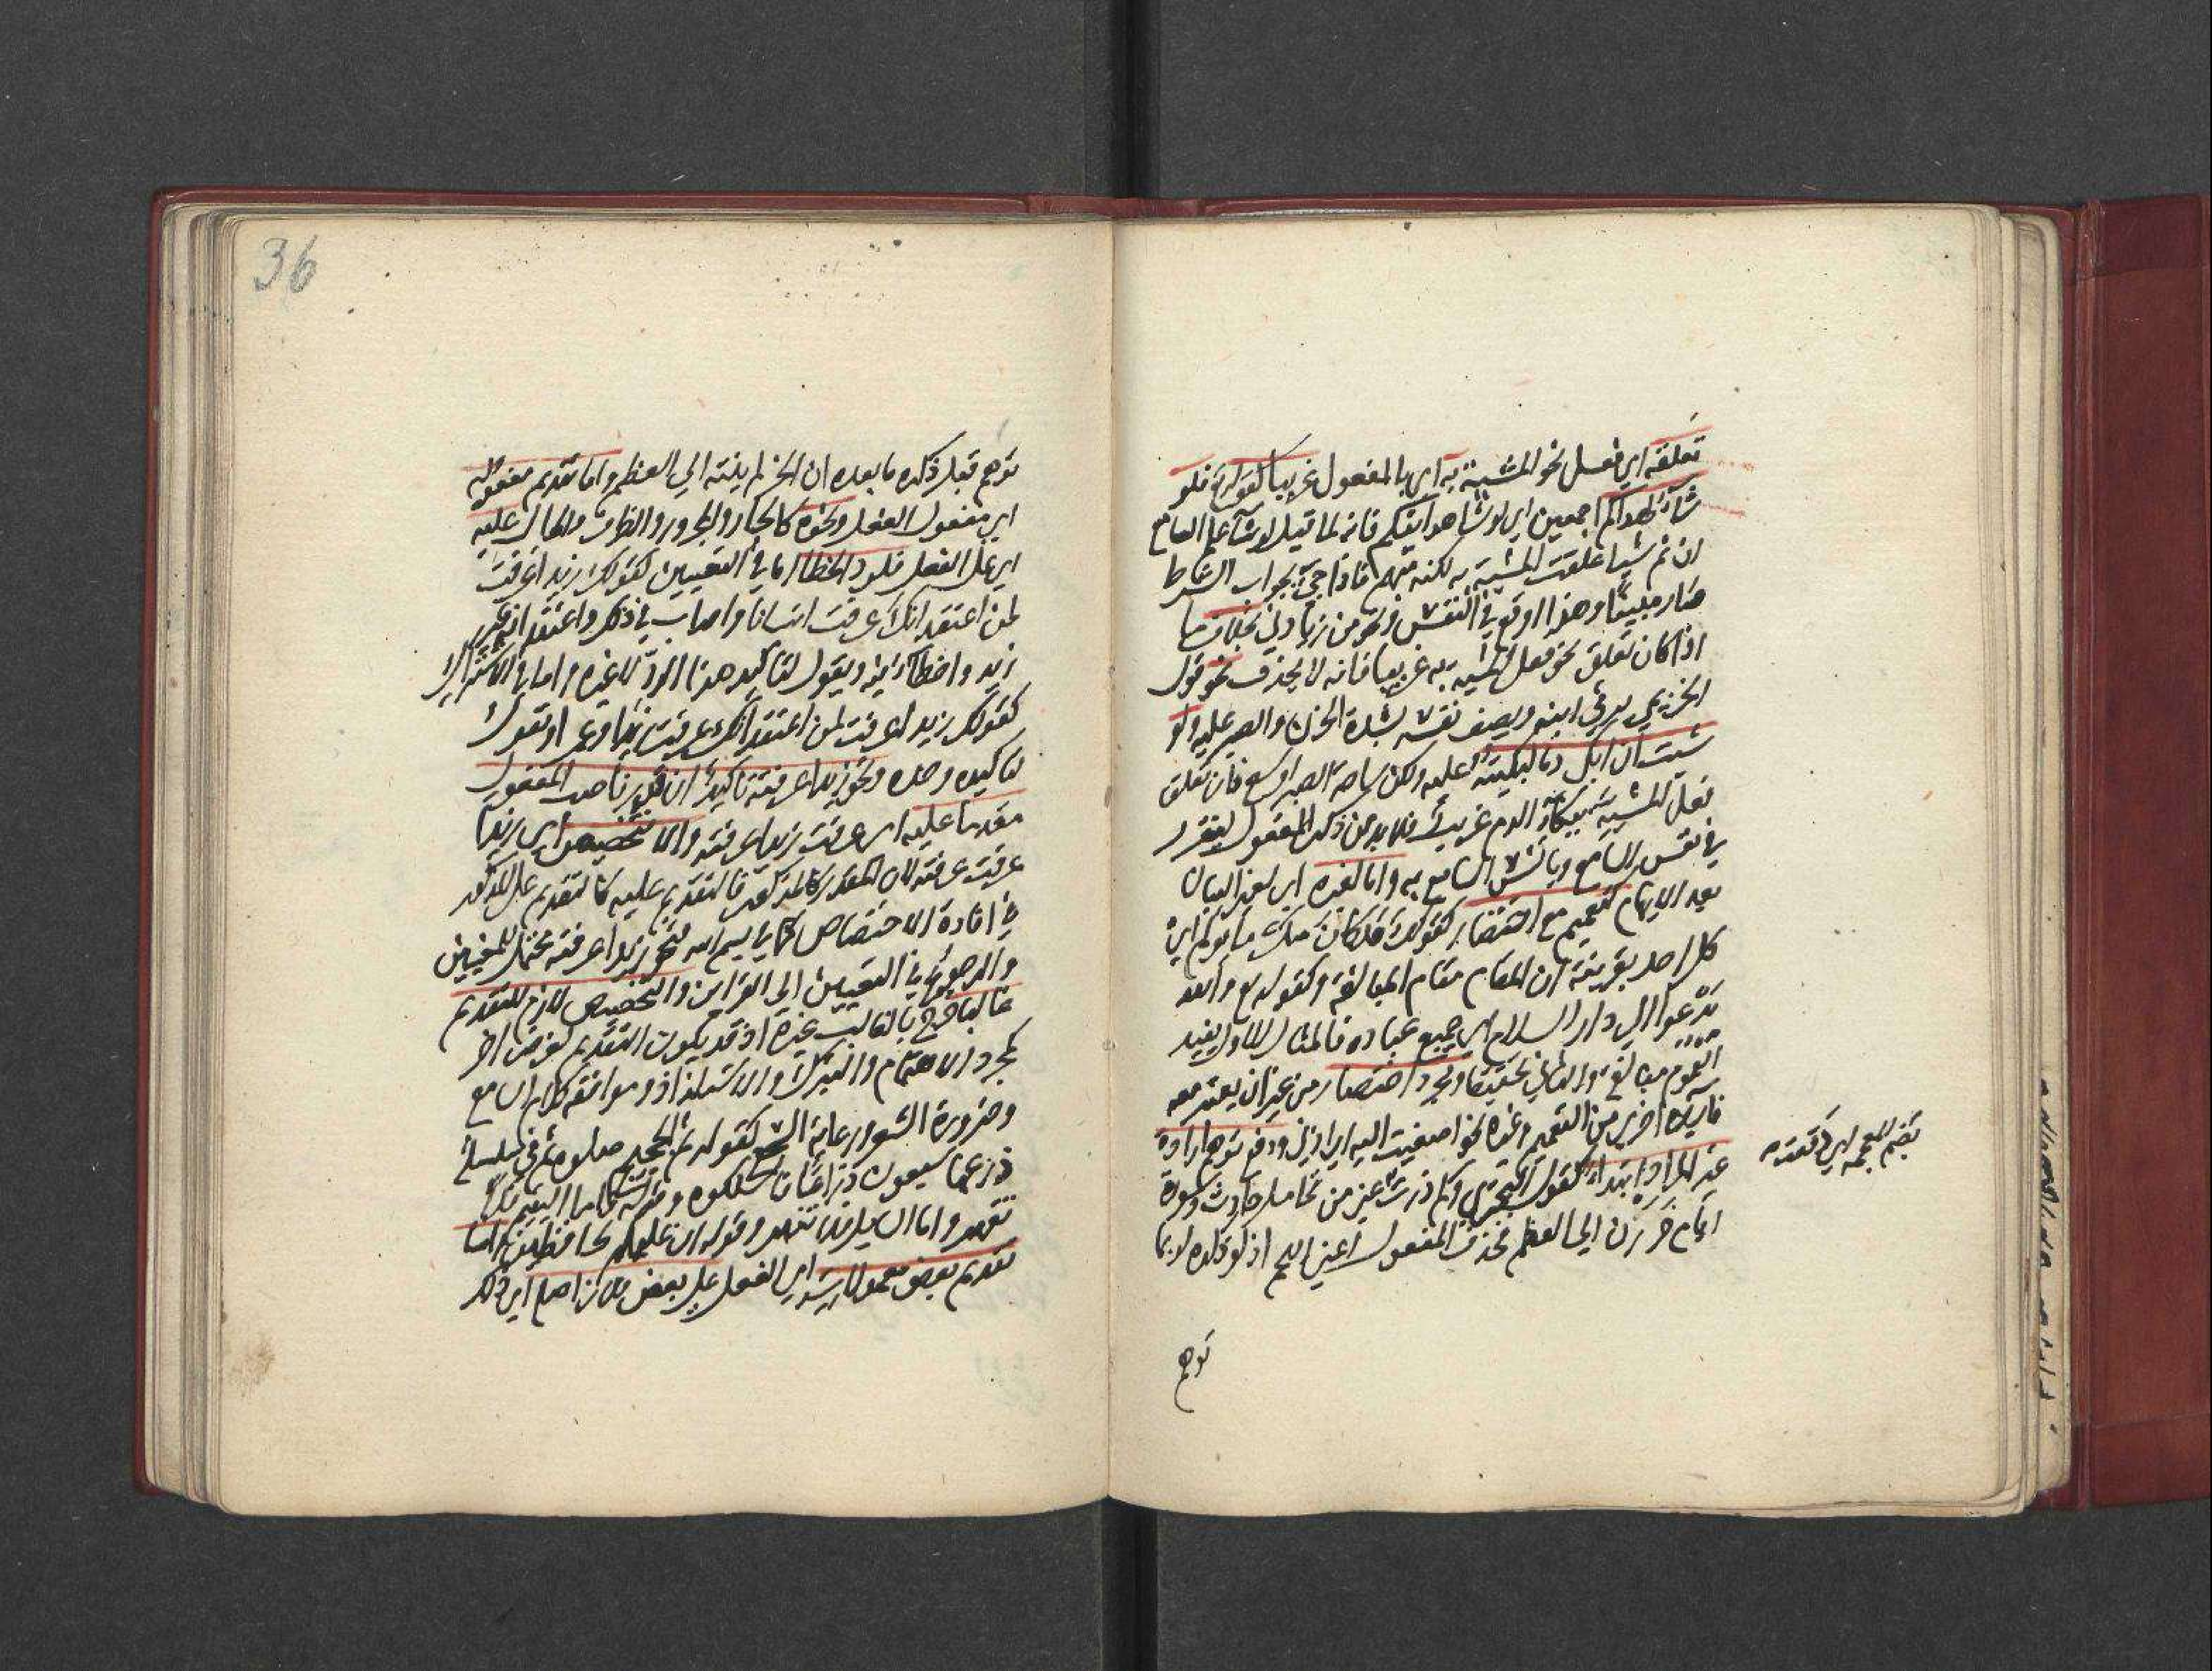 تعلقه اي فعل نحو المشية به اي بالمفعول غريبا كقوله تع فلو
شاء لهداكم اجمعين اي لو شاء هدايتكم فانه لما قيل لو شاء علم السامع
ان ثم شيا علقت المشية به لكنه مبهم فاذا جئ بجواب الشرط
صار مبينا وهذا اوقع في النفس بخلاف ما
اذا كان تعلق نحو فعل المشية به غريبا فانه لا يحذف نحو قول
الخزيمي يرثي ابنه ويصف نفسه بشدة الحزن والصبر عليه ولو
شئت ان ابكي دما لبكيته عليه ولكن ساحة الصبر اوسع فان تعلق
فعل المشية ببكاء الدم غريب فلا بد من ذكر المفعول ليتقرر
في نفس السامع ويانس السامع به واما لغيره اي لغير البيان
بعد الابهام كتعميم مع اختصار كقولك قد كان منك ما يؤلم اي
كل احد بقرينة ان المقام مقام المبالغة وكقوله تع والله
يدعوا الي دار السلام اي جميع عباده فالمثال الاول يفيد
العموم مبالغة والثاني تحقيقا ومجرد اختصار من غير ان يعتبر معه
فايدة اخري من التعميم وغيره نحو اصغيت اليه اي اذني ودفع توهم ارادة
غير المراد ابتداء كقول البحتري وكم ذدت عني من تحامل حادث وسورة
ايام حززن الي العظم فحذف المفعول اعني اللحم اذ لو ذكره لربما
توهم
توهم قبل ذكره ما بعده ان الحز لم ينته الي العظم واما تقديم مفعوله
اي مفعول الفعل ونحوه كالجار والمجرور والظرف والحال عليه
اي علي الفعل فلرد الخطا اما في التعيين كقولك زيدا عرفت
لمن اعتقد انك عرفت انسانا واصاب في ذلك واعتقد انه غير
زيد واخطا فيه ويقول لتاكيد هذا الرد لا غيره واما في الاشتراك
كقولك زيدا عرفت لمن اعتقد انك عرفت زيدا وعمرا وتقول
لتاكيده وحده ونحو زيدا عرفته تاكيد ان قدر ناصب المفعول
مقدما عليه اي عرفت زيدا عرفته والا تخصيص اي زيدا
عرفت عرفته لان المقدر كالمذكور فالتقديم عليه كالتقديم علي المذكور
في افادة الاختصاص كما في بسم الله فنحو زيدا عرفته محتمل للمعنيين
والرجوع في التعيين الي القراين والتخصيص لازم للتقديم
غالبا خرج بالغالب غيره اذ قد يكون التقديم لغرض اخر
كمجرد الاهتمام والتبرك والاستلذاذ وموافقة كلام السامع
وضرورة الشعر ورعاية كقوله ثم الجحيم صلوه ثم في سلسلة
ذرعها سبعون ذراعا فاسلكوه وقوله فاما اليتيم فلا
تقهر واما السايل فلا تنهر وقوله ان عليكم لحافظين واما
تقديم بعض معمولاته اي الفعل علي بعض فلان اصله اي ذلك